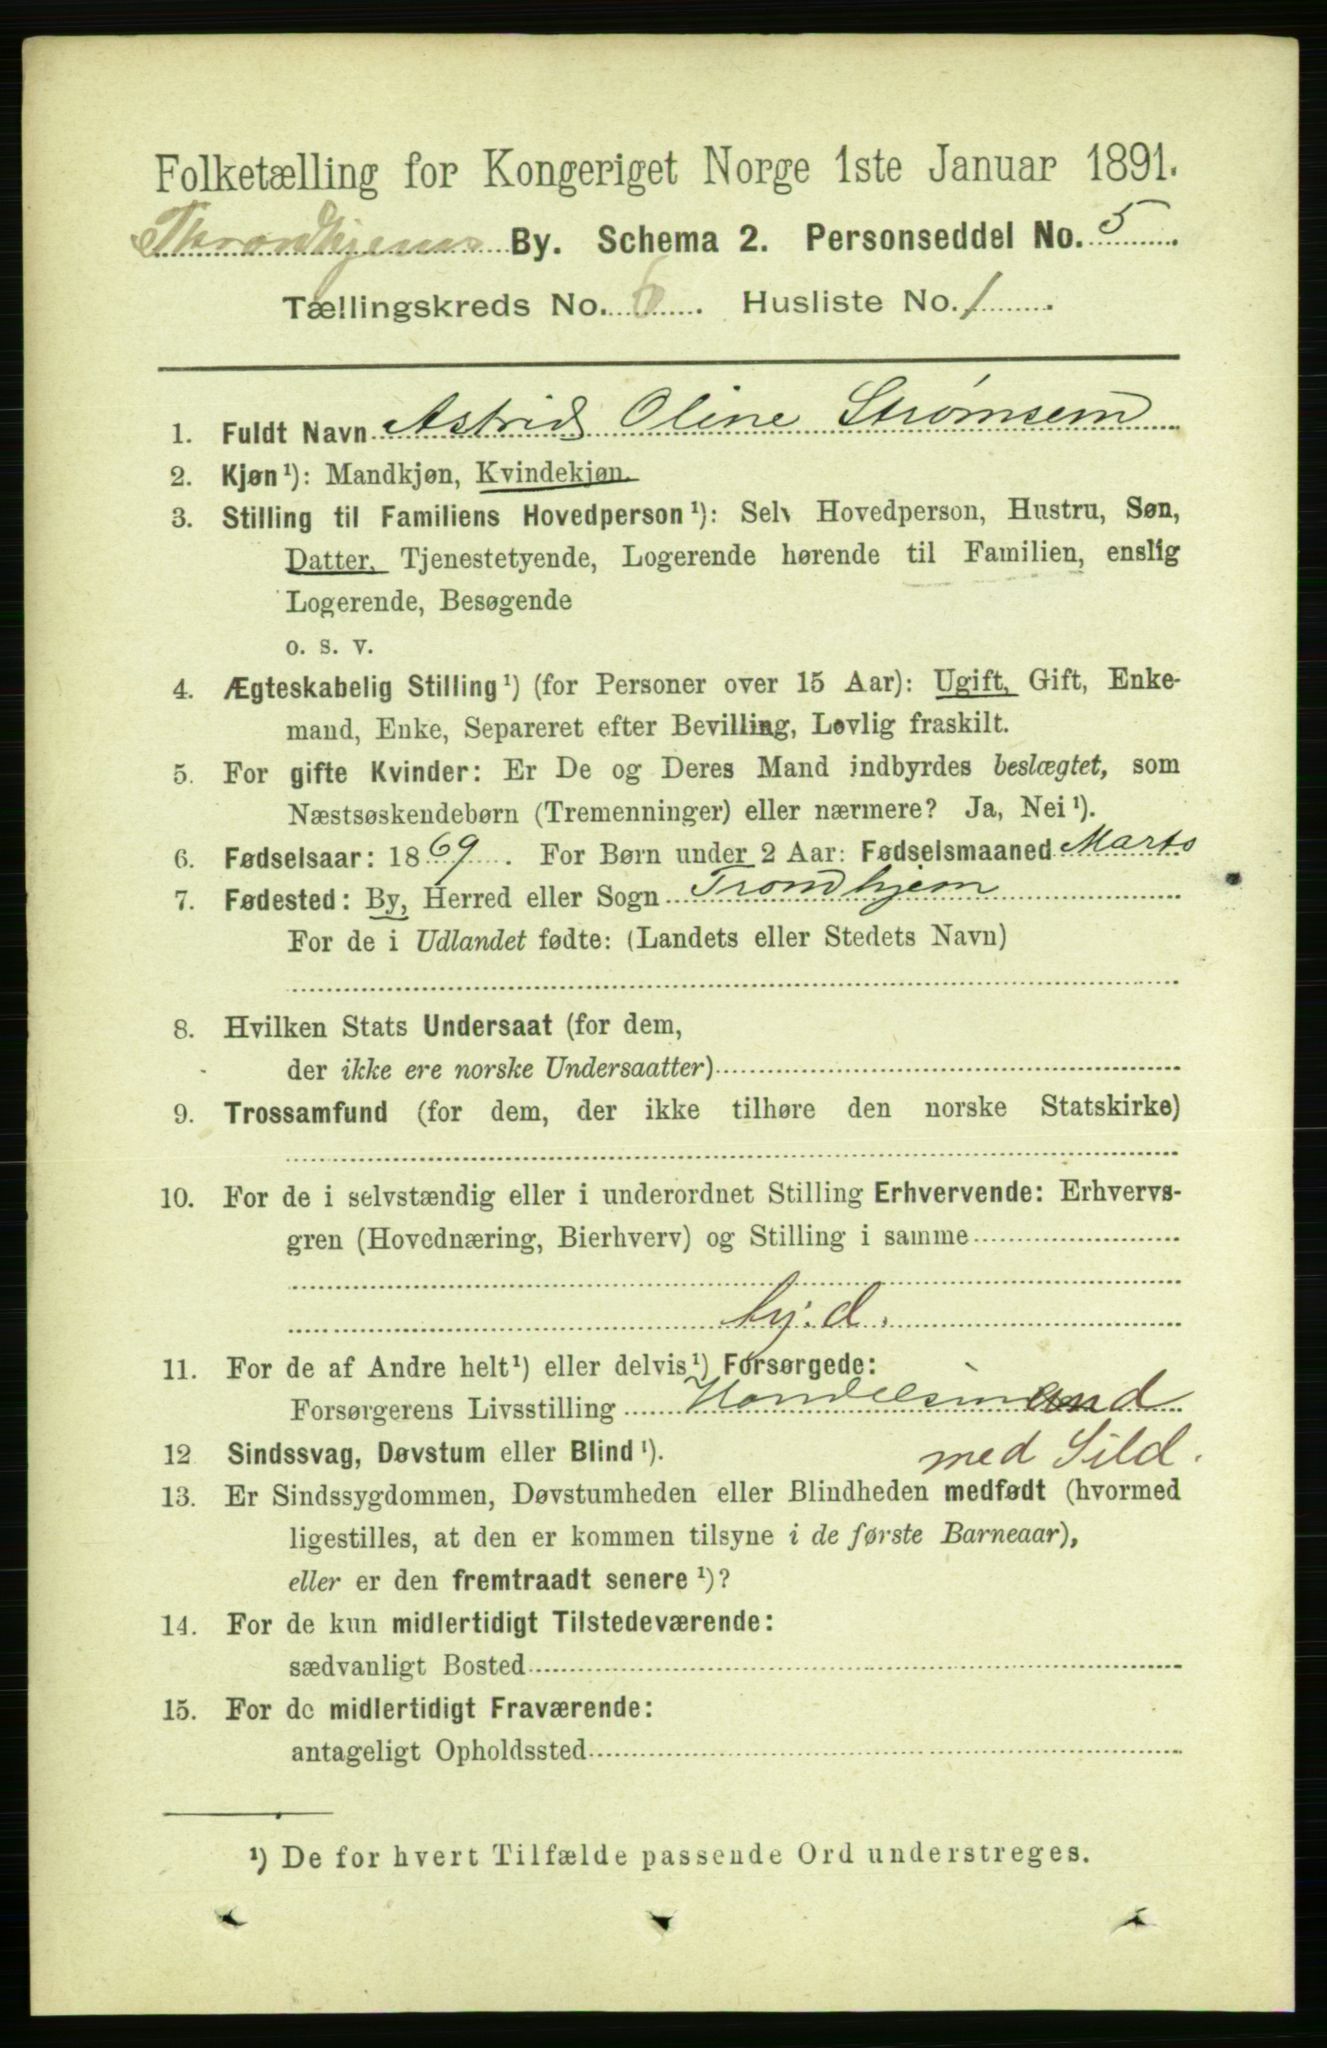 Folketælling for Kongeriget Norge 1ste Januar 1891.
Throndhjems By. Schema 2. Personseddel No. 5
Tællingskreds No. 6. Husliste No. 1.
1. Fuldt Navn Astrid Oline Strømsem
2. Kjøn¹): Mandkjøn, Kvindekjøn.
3. Stilling til Familiens Hovedperson¹): Selv Hovedperson, Hustru, Søn,
Datter, Tjenestetyende, Logerende hørende til Familien, enslig
Logerende, Besøgende
o. s. v.
4. Ægteskabelig Stilling¹) (for Personer over 15 Aar): Ugift, Gift, Enke-
mand, Enke, Separeret efter Bevilling, Lovlig fraskilt.
5. For gifte Kvinder: Er De og Deres Mand indbyrdes beslægtet, som
Næstsøskendebørn (Tremenninger) eller nærmere? Ja, Nei¹).
6. Fødselsaar: 1869. For Børn under 2 Aar: Fødselsmaaned Marts
7. Fødested: By, Herred eller Sogn Trondhjem
For de i Udlandet fødte: (Landets eller Stedets Navn)
8. Hvilken Stats Undersaat (for dem,
der ikke ere norske Undersaatter)
9. Trossamfund (for dem, der ikke tilhøre den norske Statskirke)
10. For de i selvstændig eller i underordnet Stilling Erhvervende: Erhvervs-
gren (Hovednæring, Bierhverv) og Stilling i samme
hj. d.
11. For de af Andre helt¹) eller delvis¹) Forsørgede:
Forsørgerens Livsstilling Handelsmand
med Sild.
12 Sindssvag, Døvstum eller Blind¹).
13. Er Sindssygdommen, Døvstumheden eller Blindheden medfødt (hvormed
ligestilles, at den er kommen tilsyne i de første Barneaar),
eller er den fremtraadt senere¹)?
14. For de kun midlertidigt Tilstedeværende:
sædvanligt Bosted
15. For de midlertidigt Fraværende:
antageligt Opholdssted
¹) De for hvert Tilfælde passende Ord understreges.